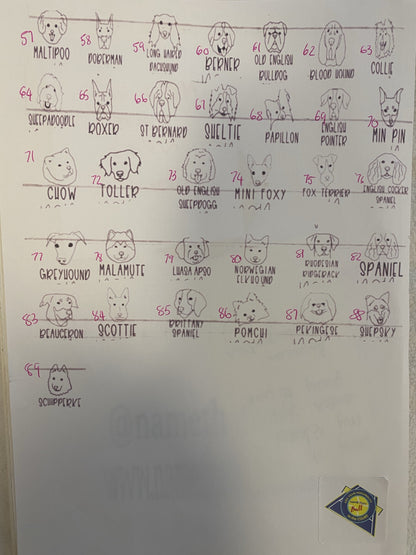 57 58 59 60 61 62 63
MALTIPOO DOBERMAN LONG HAIRED DACHSHUND BERNER OLD ENGLISH BULLDOG BLOOD HOUND COLLIE
64 65 66 67 68 69 70
SHEEPADOODLE BOXER ST BERNARD SHELTIE PAPILLON ENGLISH POINTER MIN PIN
71 72 73 74 75 76
CHOW TOLLER OLD ENGLISH SHEEPDOGG MINI FOXY FOX TERRIER ENGLISH COCKER SPANIEL
77 78 79 80 81 82
GREYHOUND MALAMUTE LHASA APSO NORWEGIAN ELKHOUND RHODESIAN RIDGEBACK SPANIEL
83 84 85 86 87 88
BEAUCERON SCOTTIE BRITTANY SPANIEL POMCHI PEKINGESE SHEPSKY
89
SCHIPPERKE
@nameth